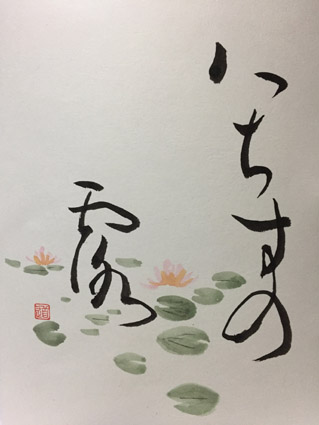 はちすの
露